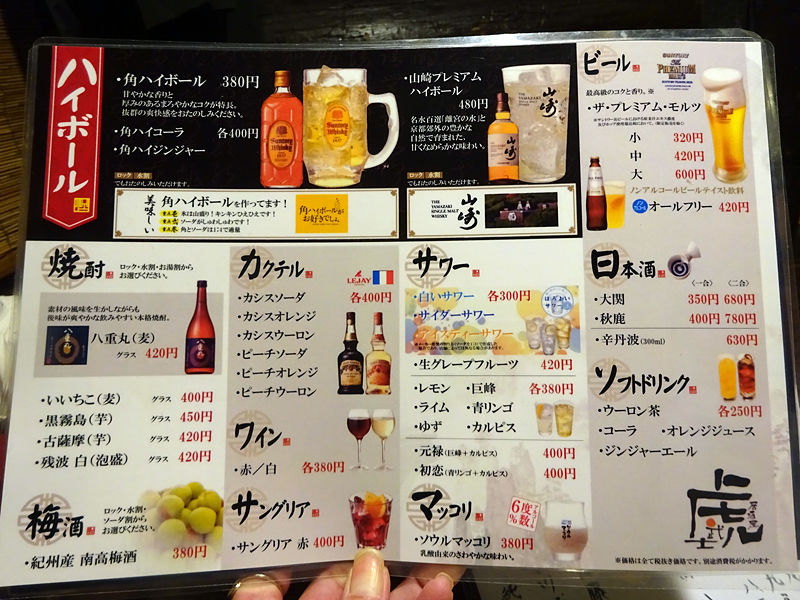 ハイボール
・角ハイボール 380円
甘やかな香りと
厚みのあるまろやかなコクが特長。
抜群の爽快感をおたのしみください。
・角ハイコーラ 各400円
・角ハイジンジャー
ロック 水割
でもおたのしみいただけます。
Suntory
Whisky
・山崎プレミアム
ハイボール
480円
名水百選「離宮の水」と
京都郊外の豊かな
自然で育まれた、
甘くなめらかな味わい。
ロック 水割
でもおたのしみいただけます。
山崎
美味しい
角ハイボールを作ってます!
氷は山盛り!キンキンひえひえです!
ソーダがしゅわしゅわです!
角とソーダは1:4で適量
角ハイボールが
お好きでしょ。
THE
YAMAZAKI
SINGLE MALT
WHISKY
山崎
ビール
SUNTORY
THE
PREMIUM
MALT'S
最高級のコクと香り。※
・ザ・プレミアム・モルツ
小 320円
中 420円
大 600円
ノンアルコールビールテイスト飲料
オールフリー 420円
焼酎
ロック・水割・お湯割から
お選びください。
素材の風味を生かしながらも
後味が爽やかな飲みやすい本格焼酎。
八重丸(麦)
グラス 420円
・いいちこ(麦) グラス 400円
・黒霧島(芋) グラス 450円
・古薩摩(芋) グラス 420円
・残波 白(泡盛) グラス 420円
梅酒
ロック・水割・
ソーダ割から
お選びください。
・紀州産 南高梅酒 380円
カクテル
LEJAY
・カシスソーダ 各400円
・カシスオレンジ
・カシスウーロン
・ピーチソーダ
・ピーチオレンジ
・ピーチウーロン
ワイン
・赤/白 各380円
サングリア
・サングリア 赤 400円
サワー
・白いサワー 各300円
・サイダーサワー
・アイスティーサワー
ほろよい
サワー
・生グレープフルーツ 420円
・レモン ・巨峰 各380円
・ライム ・青リンゴ
・ゆず ・カルピス
・元禄(巨峰+カルピス) 400円
・初恋(青リンゴ+カルピス) 400円
マッコリ
アルコール
6度数%
・ソウルマッコリ 380円
乳酸由来のさわやかな味わい。
日本酒
〈一合〉 〈二合〉
・大関 350円 680円
・秋鹿 400円 780円
・辛丹波(300ml) 630円
ソフトドリンク
・ウーロン茶 各250円
・コーラ ・オレンジジュース
・ジンジャーエール
居酒屋
虎
武士
※価格は全て税抜き価格です。別途消費税がかかります。